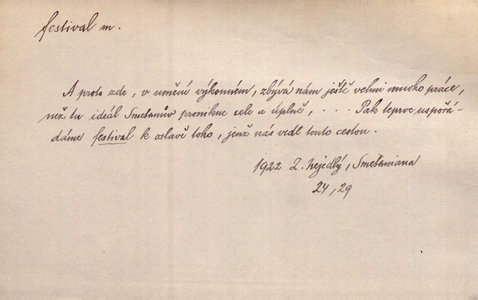 festival m.
A proto zde, v umění výkonném, zbývá nám ještě velmi mnoho práce,
než tu ideál Smetanův pronikne cele a úplně, . . . Pak teprve uspořá-
dáme festival k oslavě toho, jenž nás vedl touto cestou.
1922 Z. Nejedlý, Smetaniana
24, 29